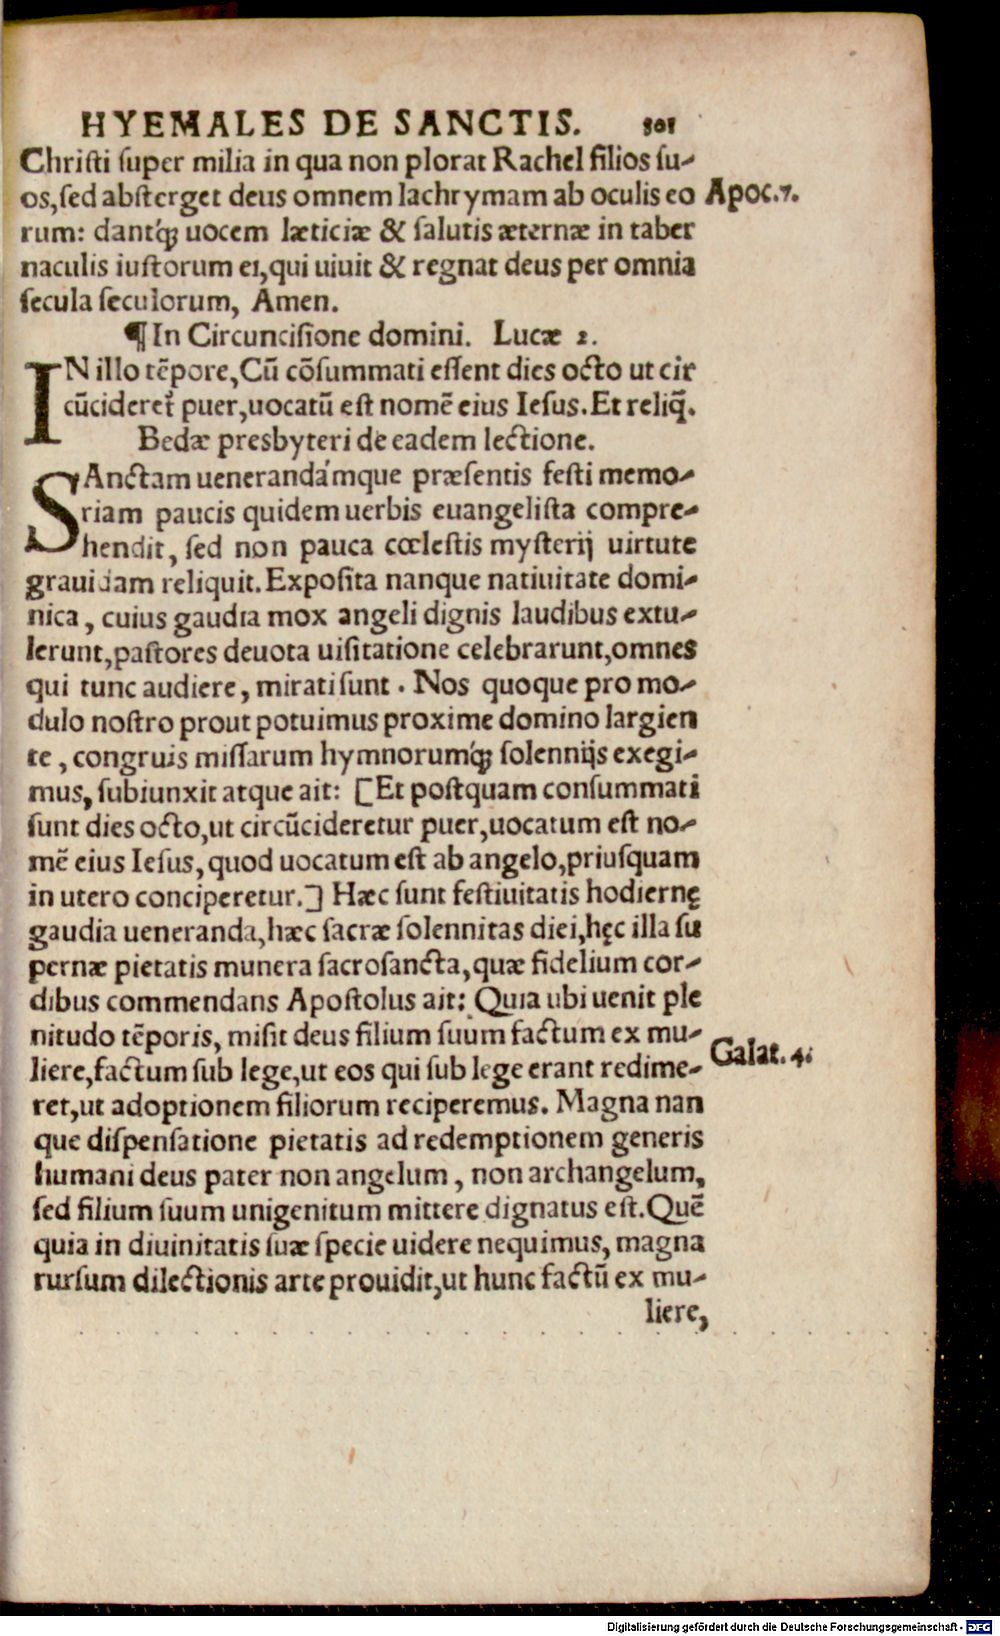 HYEMALES DE SANCTIS. 501
Christi super milia in qua non plorat Rachel filios su-
os, sed absterget deus omnem lachrymam ab oculis eo Apoc. 7.
rum: dantq́; uocem læticiæ & salutis æternæ in taber
naculis iustorum ei, qui uiuit & regnat deus per omnia
secula seculorum, Amen.
¶ In Circuncisione domini. Lucæ 2.
IN illo tẽpore, Cũ cõsummati essent dies octo ut cir
cũcideret᷑ puer, uocatũ est nomẽ eius Iesus. Et reliq̃.
Bedæ presbyteri de eadem lectione.
SAnctam uenerandámque præsentis festi memo-
riam paucis quidem uerbis euangelista compre-
hendit, sed non pauca cœlestis mysterij uirtute
grauidam reliquit. Exposita nanque natiuitate domi-
nica, cuius gaudia mox angeli dignis laudibus extu-
lerunt, pastores deuota uisitatione celebrarunt, omnes
qui tunc audiere, mirati sunt. Nos quoque pro mo-
dulo nostro prout potuimus proxime domino largien
te, congruis missarum hymnorumq́; solennijs exegi-
mus, subiunxit atque ait: [Et postquam consummati
sunt dies octo, ut circũcideretur puer, uocatum est no-
mẽ eius Iesus, quod uocatum est ab angelo, priusquam
in utero conciperetur.] Hæc sunt festiuitatis hodiernę
gaudia ueneranda, hæc sacræ solennitas diei, hęc illa su
pernæ pietatis munera sacrosancta, quæ fidelium cor-
dibus commendans Apostolus ait: Quia ubi uenit ple
nitudo tẽporis, misit deus filium suum factum ex mu-
liere, factum sub lege, ut eos qui sub lege erant redime- Galat. 4.
ret, ut adoptionem filiorum reciperemus. Magna nan
que dispensatione pietatis ad redemptionem generis
humani deus pater non angelum, non archangelum,
sed filium suum unigenitum mittere dignatus est. Quẽ
quia in diuinitatis suæ specie uidere nequimus, magna
rursum dilectionis arte prouidit, ut hunc factũ ex mu-
liere,
Digitalisierung gefördert durch die Deutsche Forschungsgemeinschaft - DFG